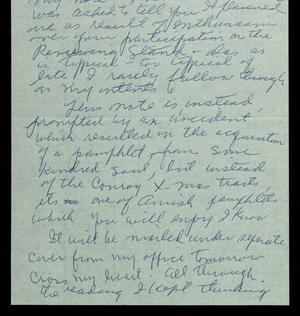 was asked to tell you I
one as result of enthusiasm
over your participation on the
Reviewing Stand - also as
is typical - too typical of
late I rarely follow through
on my intents.
This note is instead,
prompted by an incident
which resulted in the acquisition
of a pamphlet from some
kindred soul, but instead
of the Conroy X-mas tracts
its one of Amish pamphlets
which you will enjoy I know
It will be mailed under separate
cover from my office tomorrow
cross my heart. All through
the reading I kept thinking